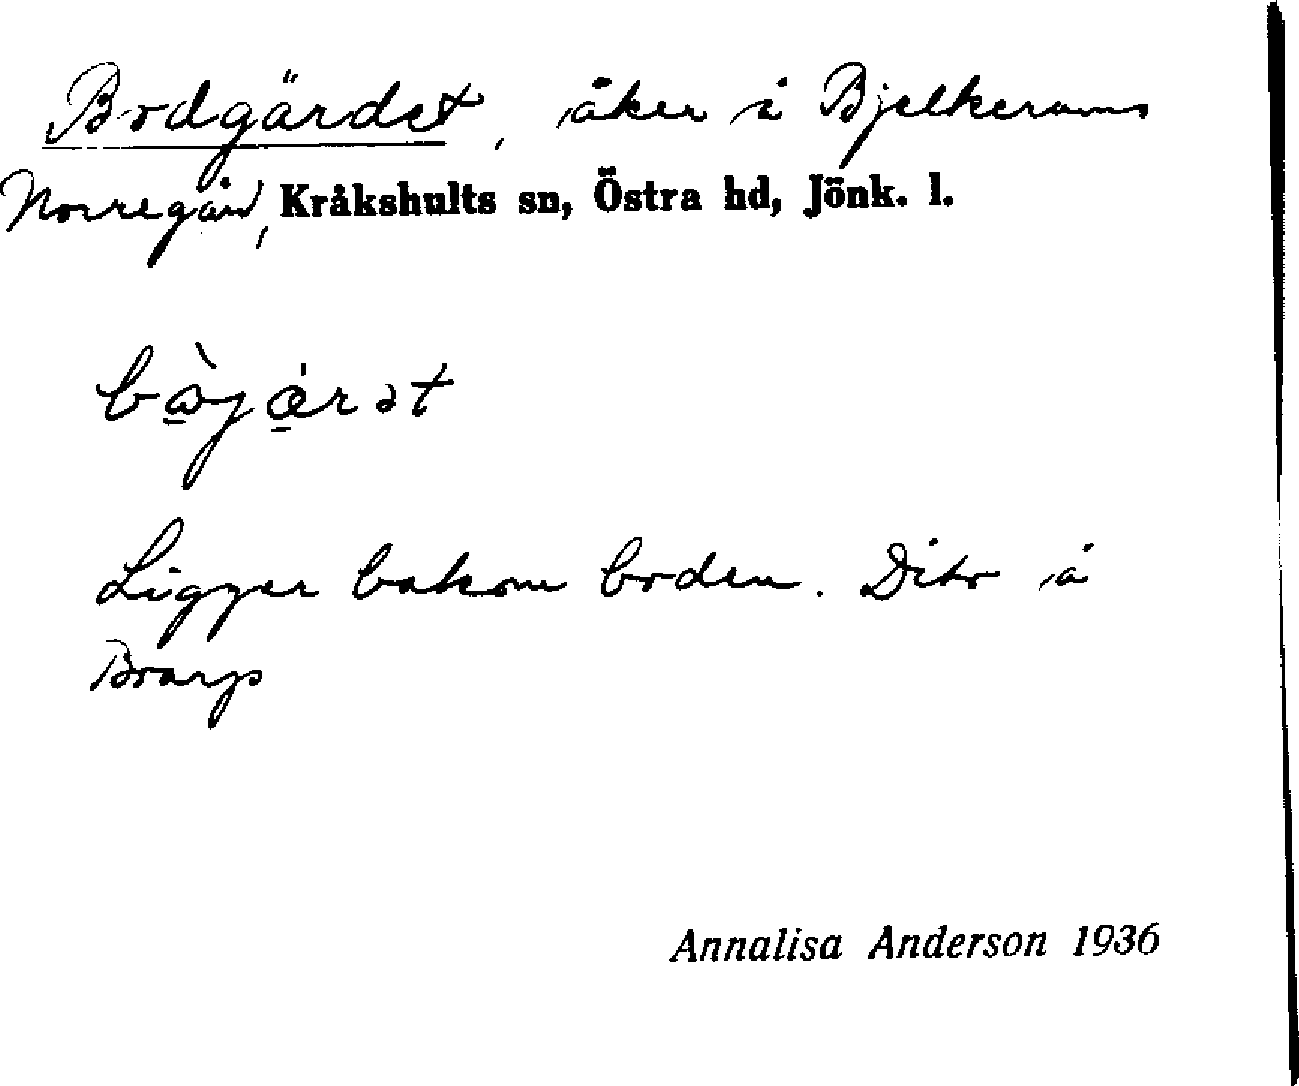 Bodgärdet, åker å Bjelkerams
Norregård, Kråkshults sn, Östra hd, Jönk. l.
bὼ̠jǽ̠rət
Ligger bakom boden. Dito å
Brarp
Annalisa Anderson 1936